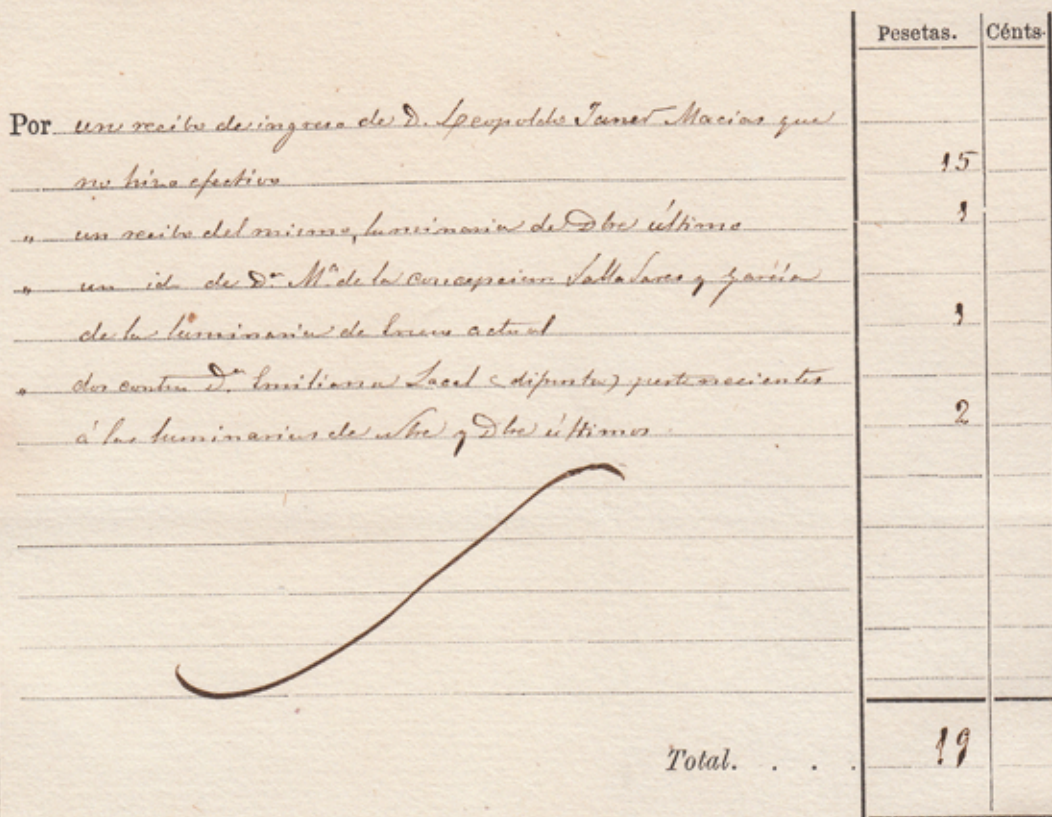 Pesetas. Cénts.
Por un recibo de ingreso de D. Leopoldo Janer Macias que
no hizo efectivo 15
" un recibo del mismo, luminaria de Dbre último 1
" un id. de Dª Mª de la Concepcion Valladares y García
de la luminaria de Enero actual 1
" dos contra Dª Emiliana Lacel (difunta) pertenecientes
á las luminarias de Nbre y Dbre últimos. 2
Total. . . . 19